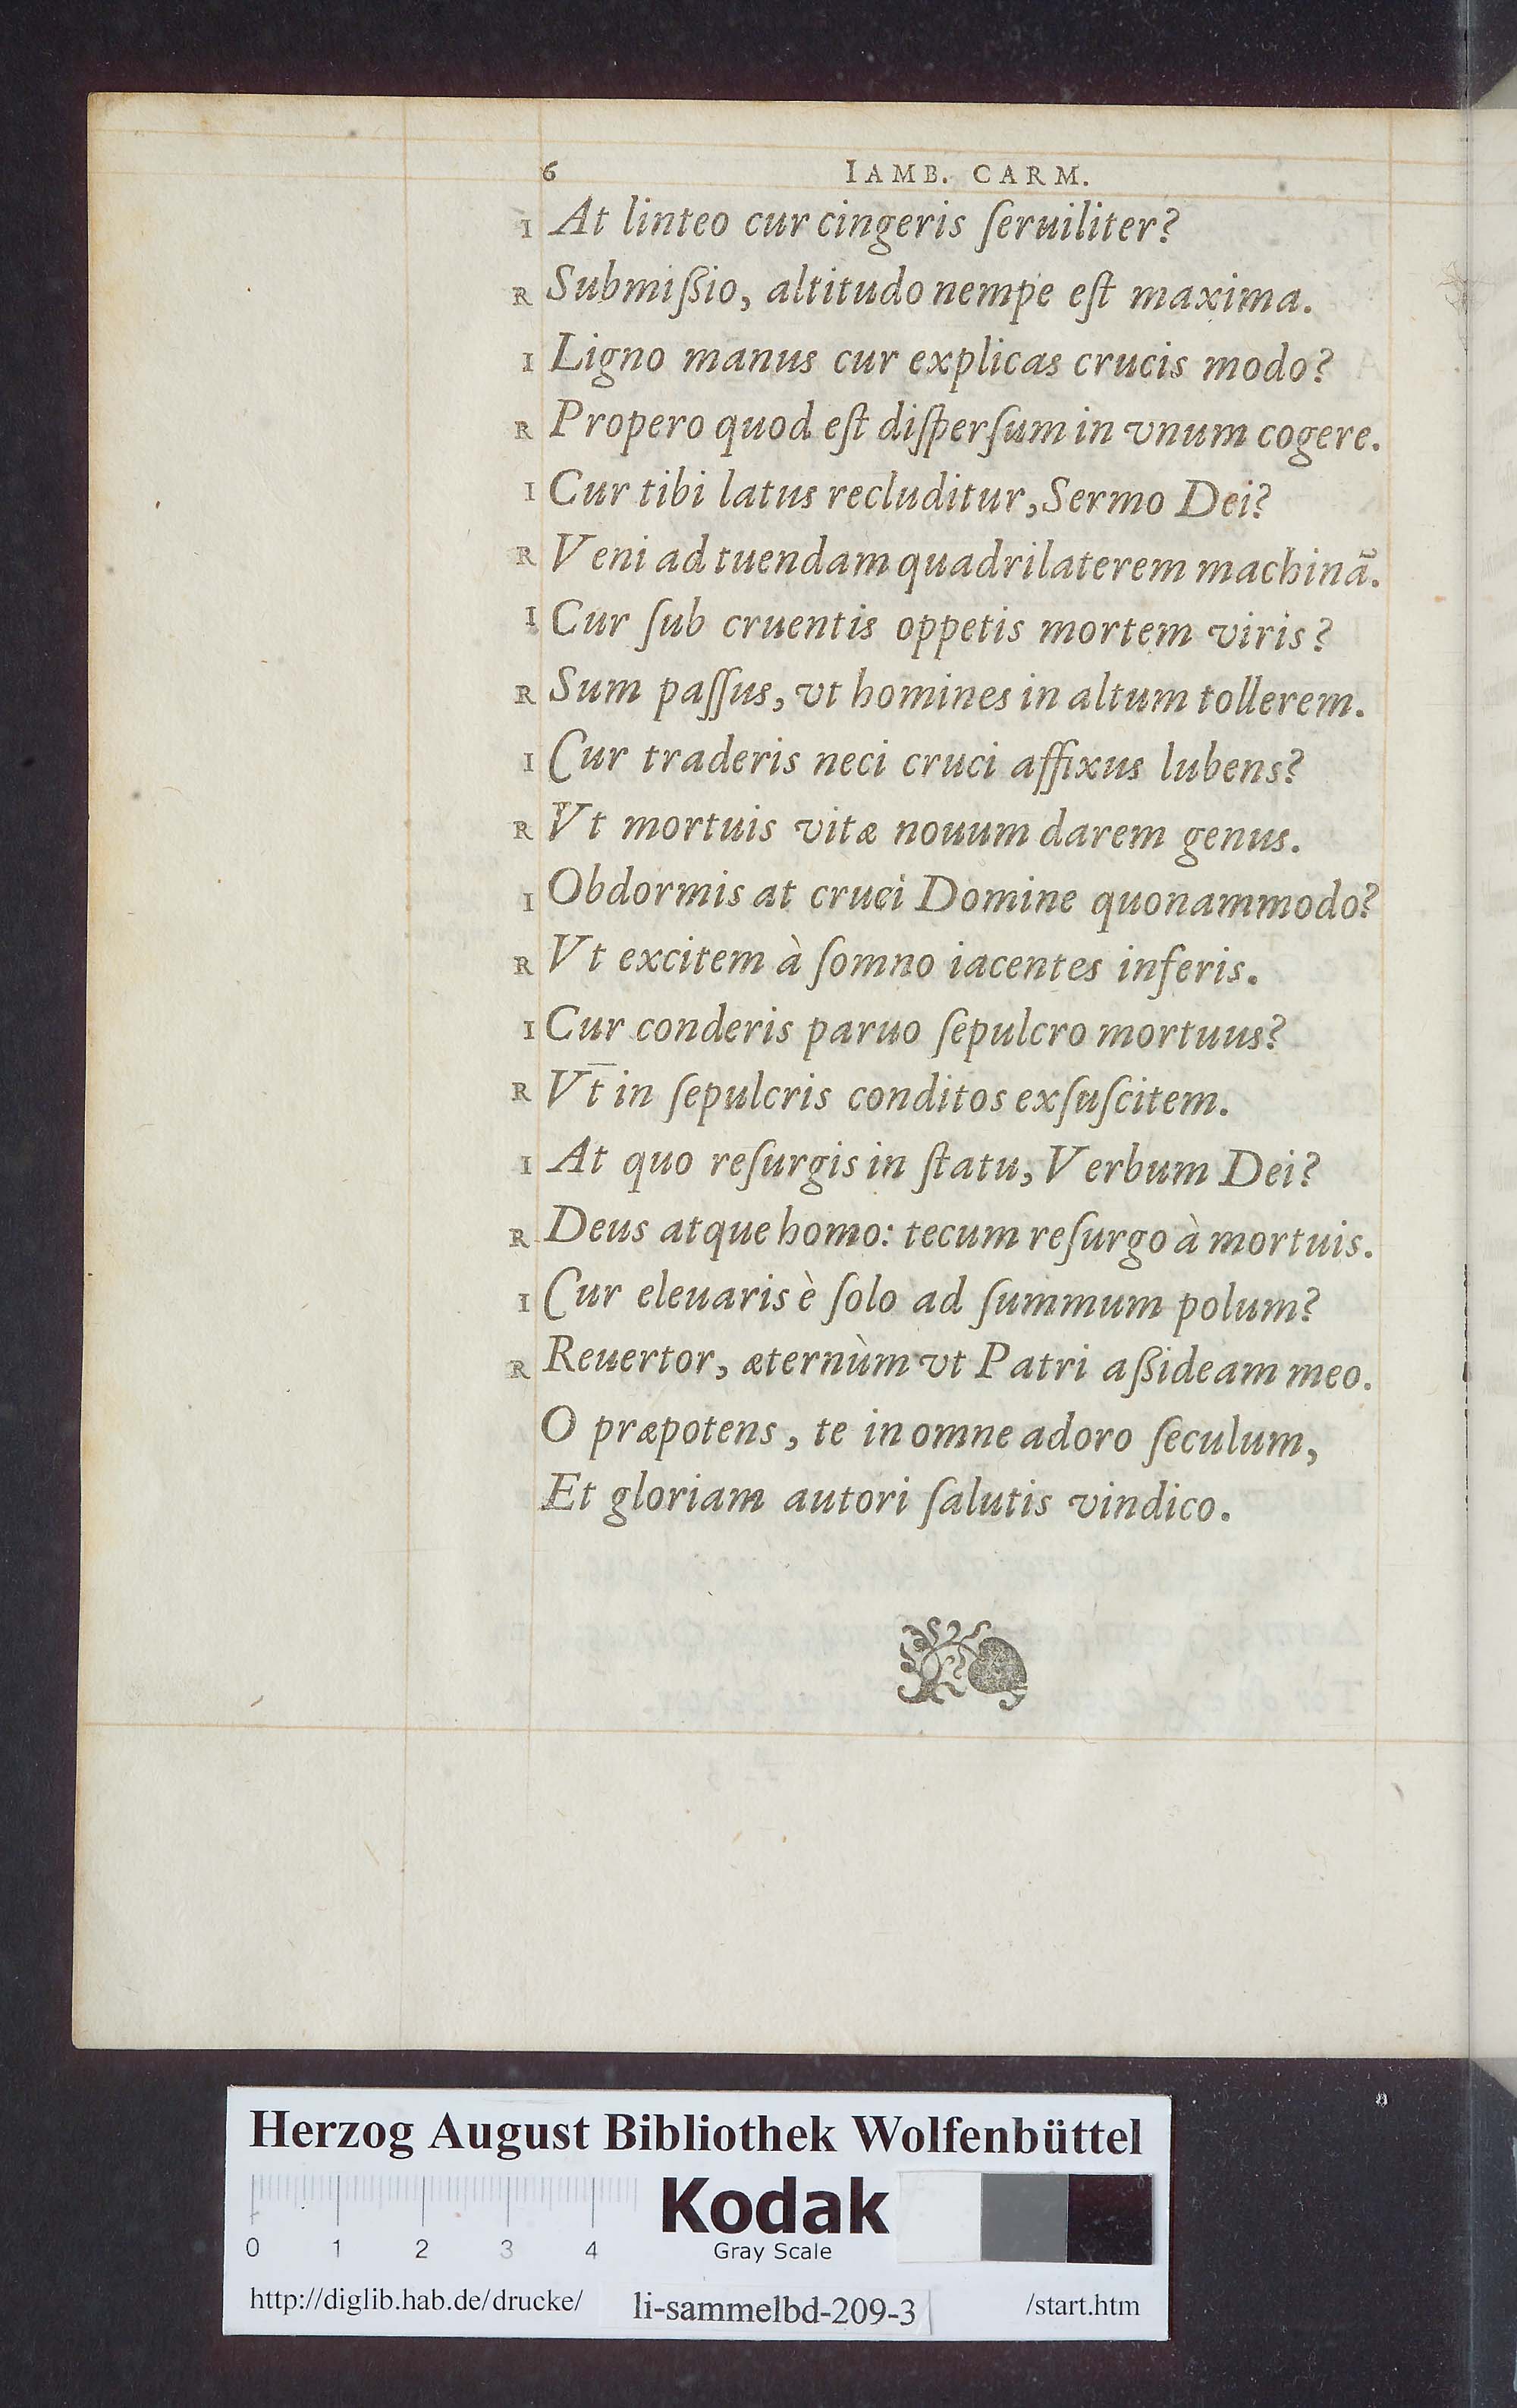 6 IAMB. CARM.
I At linteo cur cingeris ſeruiliter?
R Submiſsio, altitudo nempe eſt maxima.
I Ligno manus cur explicas crucis modo?
R Propero quod eſt diſperſum in vnum cogere.
I Cur tibi latus recluditur, Sermo Dei?
R Veni ad tuendam quadrilaterem machinã.
I Cur ſub cruentis oppetis mortem viris?
R Sum paſſus, vt homines in altum tollerem.
I Cur traderis neci cruci affixus lubens?
R Vt mortuis vitæ nouum darem genus.
I Obdormis at cruci Domine quonammodo?
R Vt excitem à ſomno iacentes inferis.
I Cur conderis paruo ſepulcro mortuus?
R Vt in ſepulcris conditos exſuſcitem.
I At quo reſurgis in ſtatu, Verbum Dei?
R Deus atque homo: tecum reſurgo à mortuis.
I Cur eleuaris è ſolo ad ſummum polum?
R Reuertor, æternùm vt Patri aſsideam meo.
O præpotens, te in omne adoro ſeculum,
Et gloriam autori ſalutis vindico.
Herzog August Bibliothek Wolfenbüttel
Kodak
0 1 2 3 4 Gray Scale
http://diglib.hab.de/drucke/ li-sammelbd-209-3 /start.htm